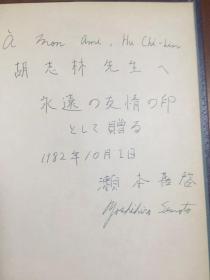 À mon Ami, Hu Chi-lin
胡志林先生へ
永遠の友情の印
として贈る
1982年10月2日
瀬本喜啓
Yoshihiro Semoto